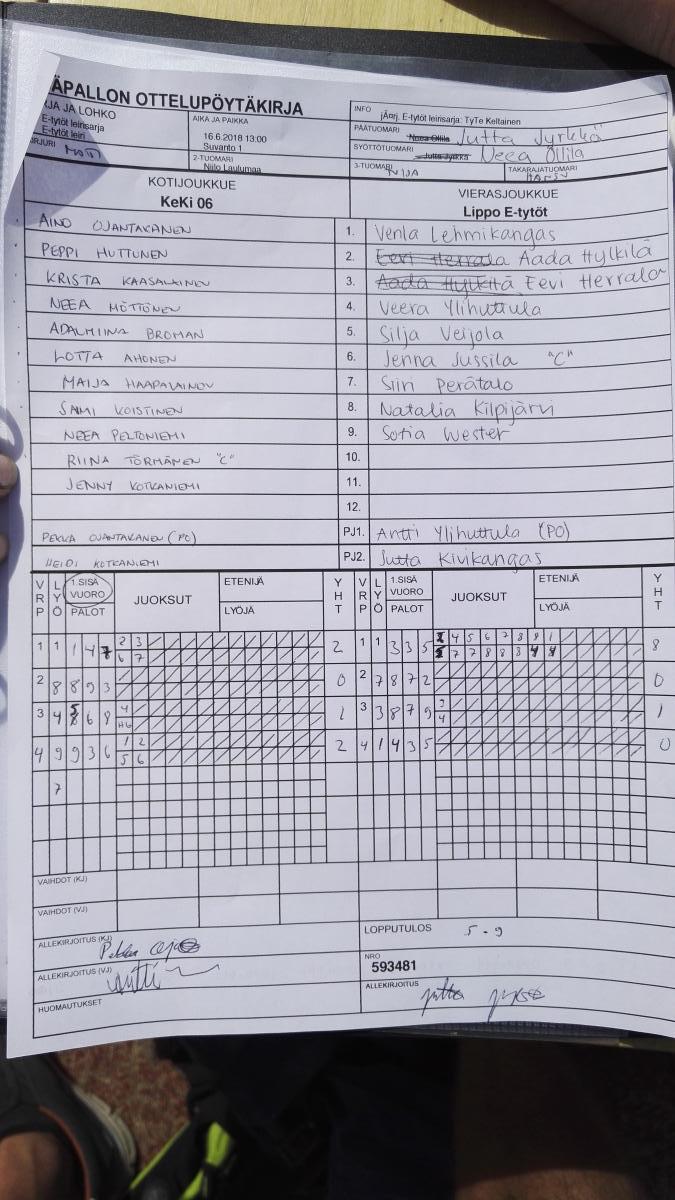 ÄPALLON OTTELUPÖYTÄKIRJA
JA JA LOHKO
E-tytöt leirisarja
E-tytöt leiri
AIKA JA PAIKKA
16.6.2018 13:00
Suvanto 1
2-TUOMARI
Niilo Laulumaa
INFO
jÄrj. E-tytöt leirisarja: TyTe Keltainen
PÄÄTUOMARI Neea Ollila Jutta Jyrkkä
SYÖTTÖTUOMARI Jutta Jyrkkä Neea Ollila
3-TUOMARI NIJA
TAKARAJATUOMARI
KOTIJOUKKUE
KeKi 06
VIERASJOUKKUE
Lippo E-tytöt
AINO OJANTAKANEN 1. Venla Lehmikangas
PEPPI HUTTUNEN 2. Eevi Herrala Aada Hylkilä
KRISTA KAASALAINEN 3. Aada Hylkilä Eevi Herrala
NEEA MÖTTÖNEN 4. Veera Ylihuttula
ADALMIINA BROMAN 5. Silja Veijola
LOTTA AHONEN 6. Jenna Jussila "C"
MAIJA HAAPALAINEN 7. Siiri Perätalo
SAMI KOISTINEN 8. Natalia Kilpijärvi
NEEA PELTONIEMI 9. Sofia Wester
RIINA TÖRMÄNEN "C" 10.
JENNY KOTKANIEMI 11.
12.
PEKKA OJANTAKANEN (PO) PJ1. Antti Ylihuttula (PO)
HEIDI KOTKANIEMI PJ2. Jutta Kivikangas
VRP LYÖ 1.SISÄ VUORO PALOT JUOKSUT ETENIJÄ LYÖJÄ YHT VRP LYÖ 1.SISÄ VUORO PALOT JUOKSUT ETENIJÄ LYÖJÄ YHT
1 1 1 4 7 2 3 2 1 1 3 3 5 4 5 6 7 8 9 1 8
6 7 7 7 8 8 3 4 4
2 8 8 9 3 0 2 7 8 7 2 0
3 4 8 6 8 4 1 3 3 8 7 9 3 1
H6 4
4 9 9 3 6 1 2 2 4 1 4 3 5 0
5 6
7
VAIHDOT (KJ)
VAIHDOT (VJ)
ALLEKIRJOITUS (KJ)
LOPPUTULOS 5 - 9
ALLEKIRJOITUS (VJ)
NRO
593481
HUOMAUTUKSET
ALLEKIRJOITUS